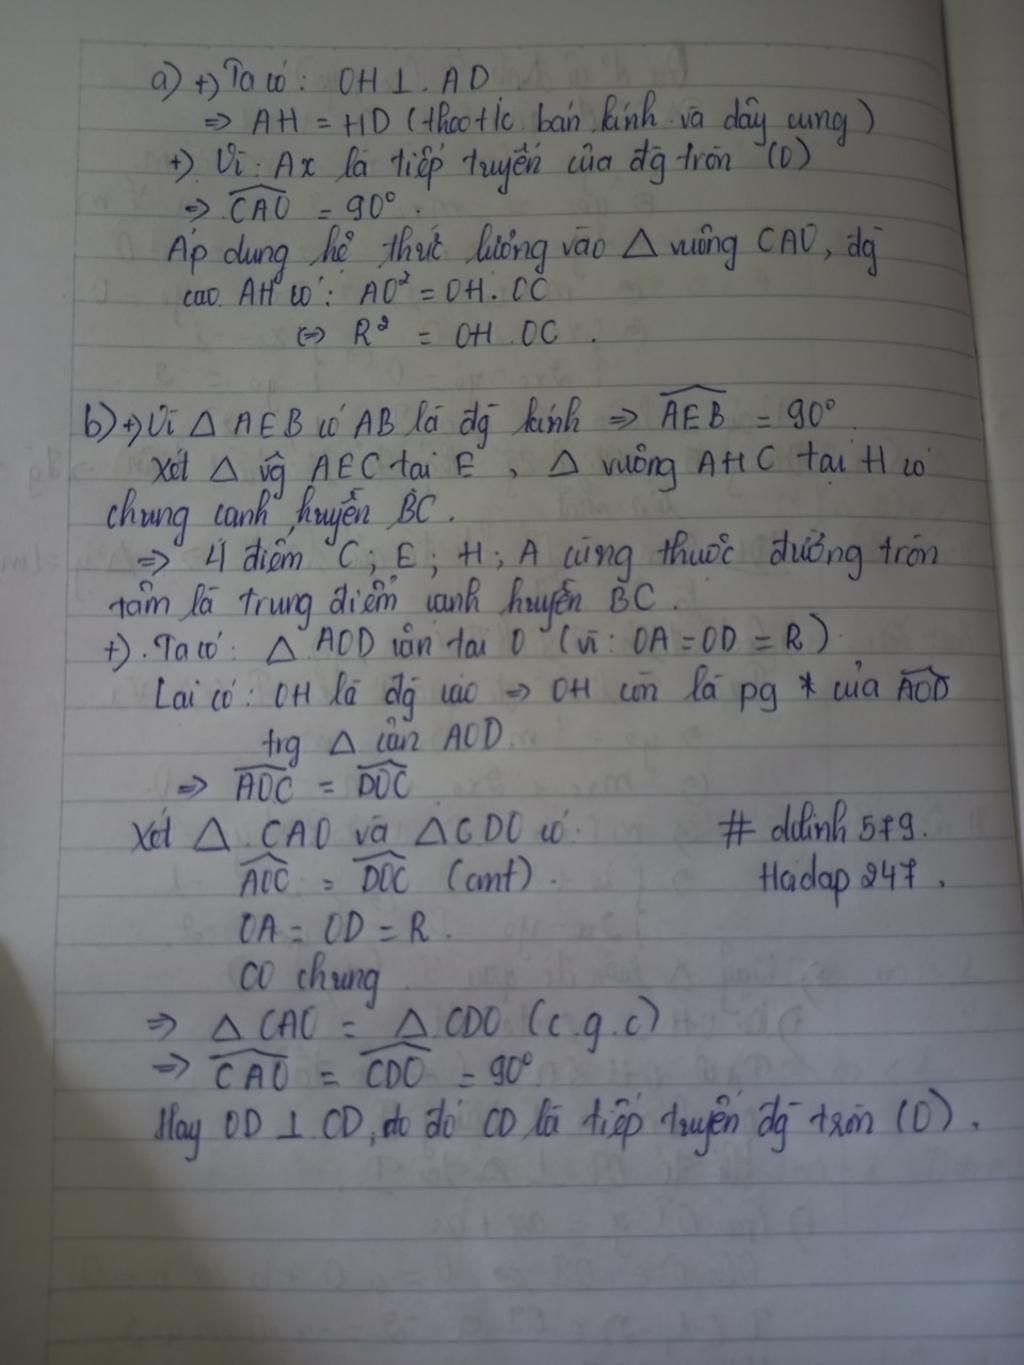 a) +) Ta có: OH ⊥ AD
=> AH = HD (theo t/c bán kính và dây cung)
+) Vì: Ax là tiếp tuyến của đg tròn (O)
=> \widehat{CAO} = 90°.
Áp dụng hệ thức lượng vào Δ vuông CAO, đg
cao AH có: AO² = OH.OC
<=> R² = OH.OC.
b) +) Vì Δ AEB có AB là đg kính => \widehat{AEB} = 90°
Xét Δ vg AEC tại E, Δ vuông AHC tại H có
chung cạnh huyền BC.
=> 4 điểm C; E; H; A cùng thuộc đường tròn
tâm là trung điểm cạnh huyền BC.
+). Ta có: Δ AOD cân tại O (vì: OA = OD = R).
Lại có: OH là đg cao => OH còn là pg * của \widehat{AOD}
trg Δ cân AOD.
=> \widehat{AOC} = \widehat{DOC}
Xét Δ CAO và Δ CDO có: # ddinh 579.
\widehat{AOC} = \widehat{DOC} (cmt). Hoidap 247.
OA = OD = R.
CO chung.
=> Δ CAO = Δ CDO (c.g.c)
=> \widehat{CAO} = \widehat{CDO} = 90°.
Hay OD ⊥ CD, do đó CD là tiếp tuyến đg tròn (O).